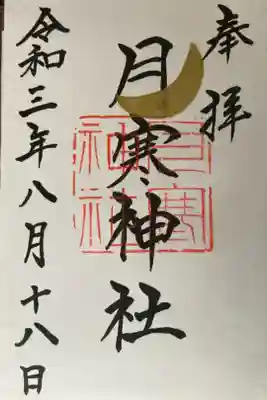 奉拝
月寒神社
月寒神社
令和三年八月十八日